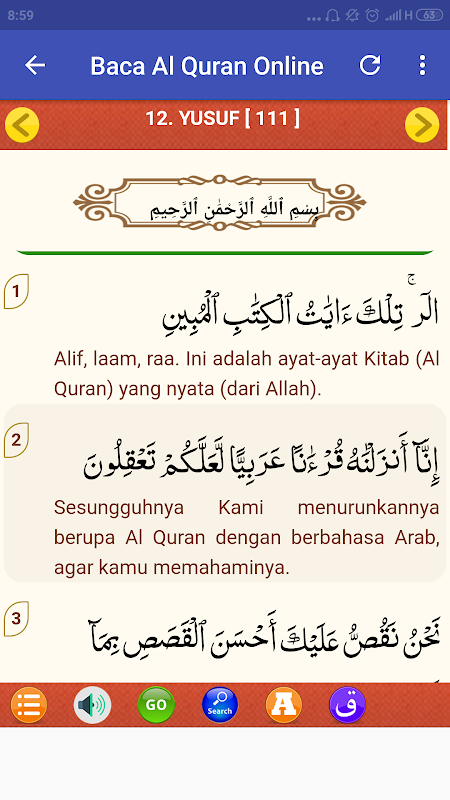 8:59
H 63
Baca Al Quran Online
12. YUSUF [ 111 ]
بِسْمِ ٱللَّهِ ٱلرَّحْمَٰنِ ٱلرَّحِيمِ
1
الٓر ۚ تِلْكَ ءَايَٰتُ ٱلْكِتَٰبِ ٱلْمُبِينِ
Alif, laam, raa. Ini adalah ayat-ayat Kitab (Al
Quran) yang nyata (dari Allah).
2
إِنَّآ أَنزَلْنَٰهُ قُرْءَٰنًا عَرَبِيًّا لَّعَلَّكُمْ تَعْقِلُونَ
Sesungguhnya Kami menurunkannya
berupa Al Quran dengan berbahasa Arab,
agar kamu memahaminya.
3
نَحْنُ نَقُصُّ عَلَيْكَ أَحْسَنَ ٱلْقَصَصِ بِمَآ
GO
Search
A
ق